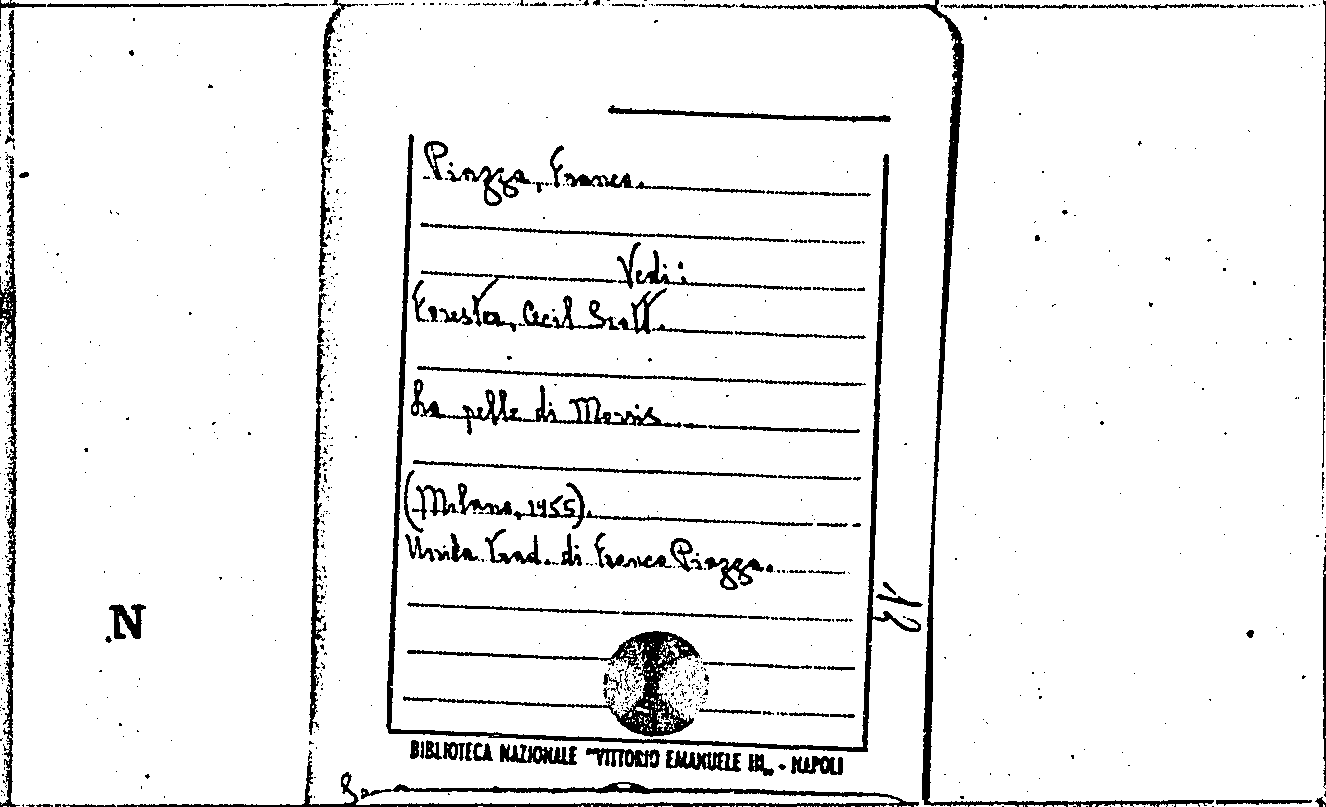 Piazza, Franca.
Vedi:
Forester, Cecil Scott.
La pelle di Messis
(Milano, 1955).
Unita Trad. di Franca Piazza.
13
N
BIBLIOTECA NAZIONALE "VITTORIO EMANUELE III„ - NAPOLI